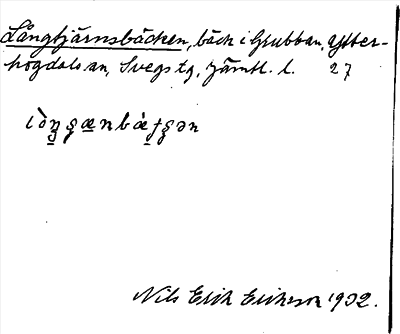 Långtjärnsbäcken, bäck i Grubban, Ytter-
högdals sn, Svegs tg, Jämtl. l. 27
Nils Erik Erikson 1932.